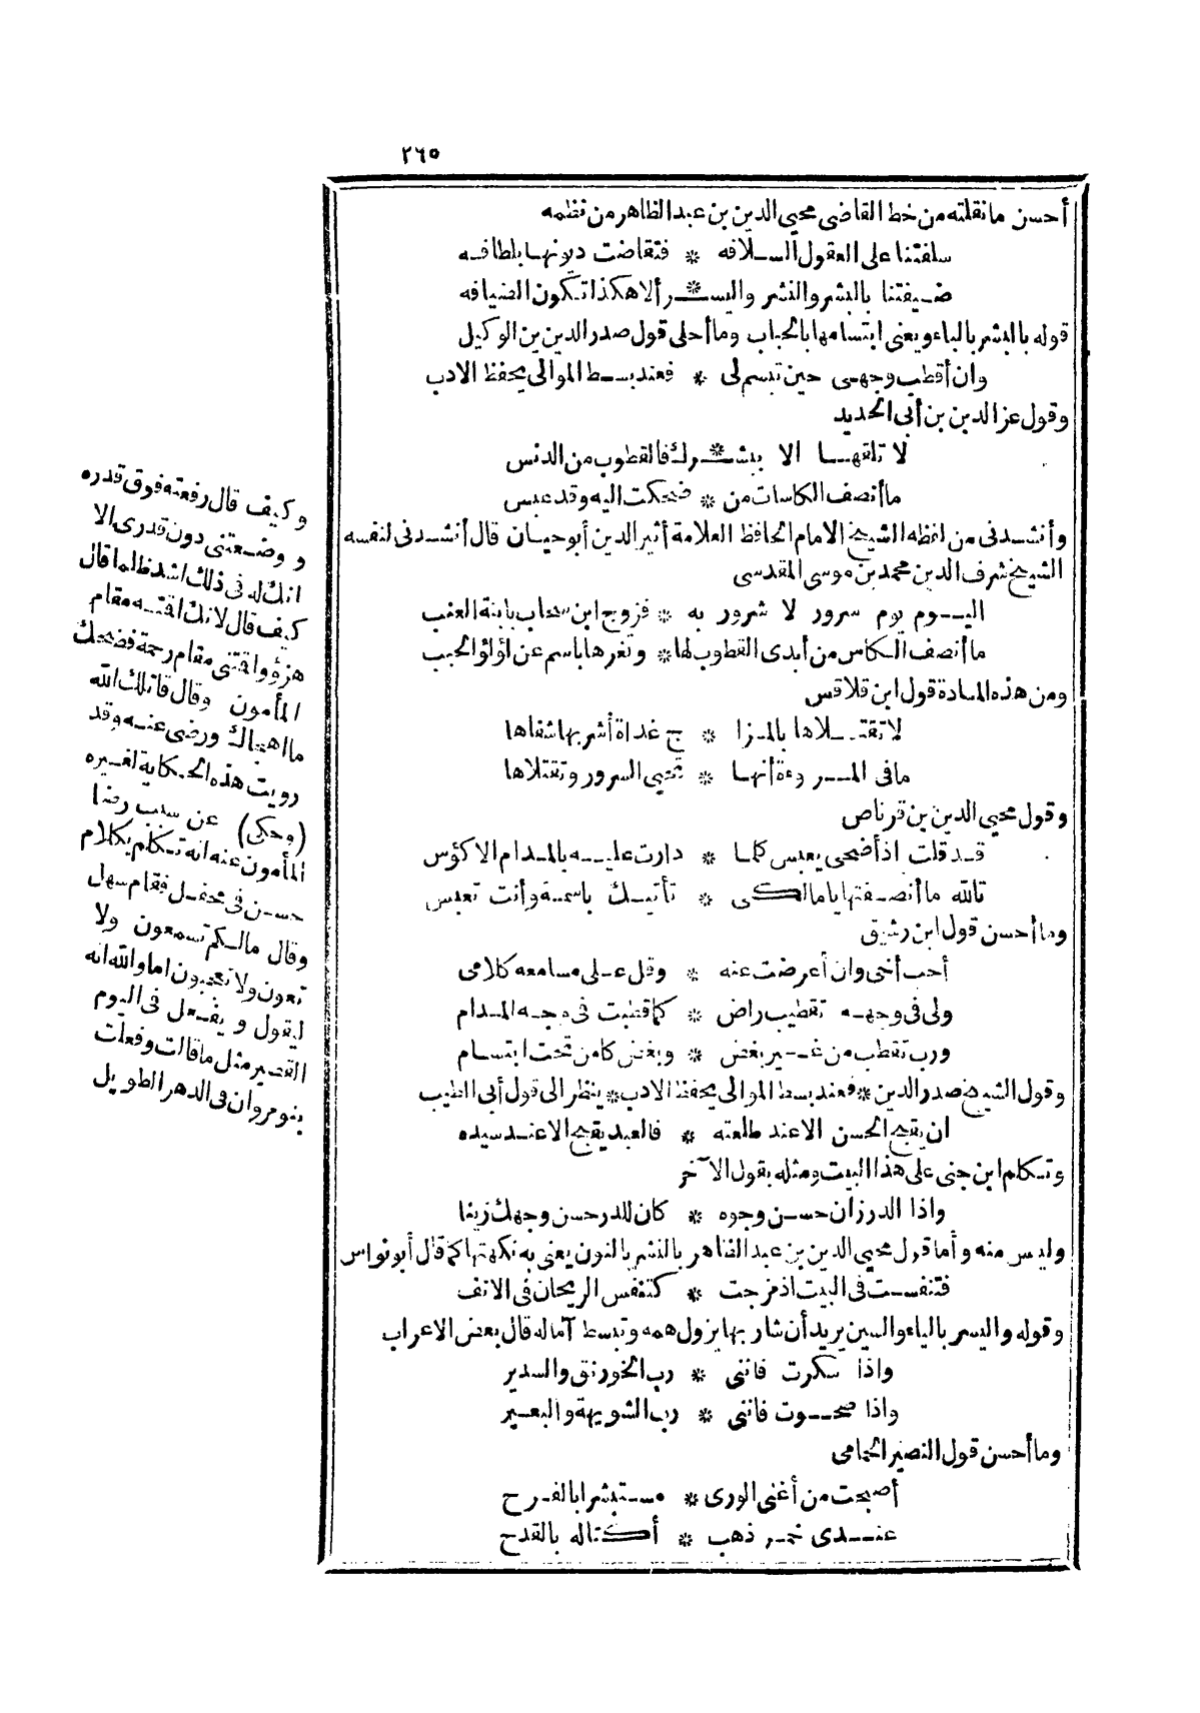 ٢٦٥
أحسن مانقلته من خط القاضى محيى الدين بن عبد الظاهر من نظمه
سلفتنا على العقول السلافه * فتقاضت ديونها بلطافه
ضيفتنا بالبشر والنشر واليسـ * ـر ألا هكذا تكون الضيافه
قوله بالبشر بالباء ويعنى ابتسامها بالحباب وما أحلى قول صدر الدين بن الوكيل
وان أقطب وجهى حين تبسم لى * فعند بسط الموالى يحفظ الادب
وقول عز الدين بن أبى الحديد
لا تلقها الا ببشـ * ـرك فالقطوب من الدنس
ما أنصف الكاسات من * ضحكت اليه وقد عبس
وأنشدنى من لفظه الشيخ الامام الحافظ العلامة أثير الدين أبو حيان قال أنشدنى لنفسه
الشيخ شرف الدين محمد بن موسى المقدسى
اليوم يوم سرور لا شرور به * فزوج ابن سحاب بابنة العنب
ما أنصف الكاس من أبدى القطوب لها * وثغرها باسم عن لؤلؤ الحبب
ومن هذه المادة قول ابن قلاقس
لا تقتلاها بالمزا * ج غداة أشربها شفاها
ما فى المروءة أنها * تحيى السرور وتقتلاها
وقول محيى الدين بن قرناص
قد قلت اذ أضحى يعبس كلما * دارت عليه بالمدام الاكؤس
تالله ما أنصفتها يا مالكى * تأتيك باسمة وأنت تعبس
وما أحسن قول ابن رشيق
أحب أخى وان أعرضت عنه * وقل على مسامعه كلامى
ولى فى وجهه تقطيب راض * كما قطبت فى وجه المدام
ورب تقطب من غير بغض * وبغض كامن تحت ابتسام
وقول الشيخ صدر الدين * فعند بسط الموالى يحفظ الادب * ينظر الى قول أبى الطيب
ان يقبح الحسن الا عند طلعته * فالعبد يقبح الا عند سيده
وتكلم ابن جنى على هذا البيت ومثله بقول الآخر
واذا الدر زان حسن وجوه * كان للدر حسن وجهك زينا
وليس منه وأما قول محيى الدين بن عبد الظاهر بالنشر بالنون يعنى به نكهتها كما قال أبو نواس
فتنفست فى البيت اذ مزجت * كتنفس الريحان فى الانف
وقوله واليسر بالياء والسين يريد أن شاربها يزول همه وتبسط آماله قال بعض الاعراب
واذا سكرت فاننى * رب الخورنق والسدير
واذا صحوت فاننى * رب الشويهة والبعير
وما أحسن قول النصير الحمامى
أصبحت من أغنى الورى * مستبشرا بالفرح
عندى خمر ذهب * أكتاله بالقدح
وكيف قال رفعته فوق قدره
ووضعتنى دون قدرى الا
انك له فى ذلك اشد ظلما قال
كيف قال لانك اقمته مقام
هزؤ واقمتنى مقام رحمة فضحك
المأمون وقال قاتلك الله
ما اهجاك ورضى عنه وقد
رويت هذه الحكاية لغيره
(وحكى) عن سبب رضا
المأمون عنه انه تكلم بكلام
حسن فى محفل فقام سهل
وقال مالكم تسمعون ولا
تعون ولا تعجبون اما والله انه
ليقول ويفعل فى اليوم
القصير مثل ما قالت وفعلت
بنو مروان فى الدهر الطويل